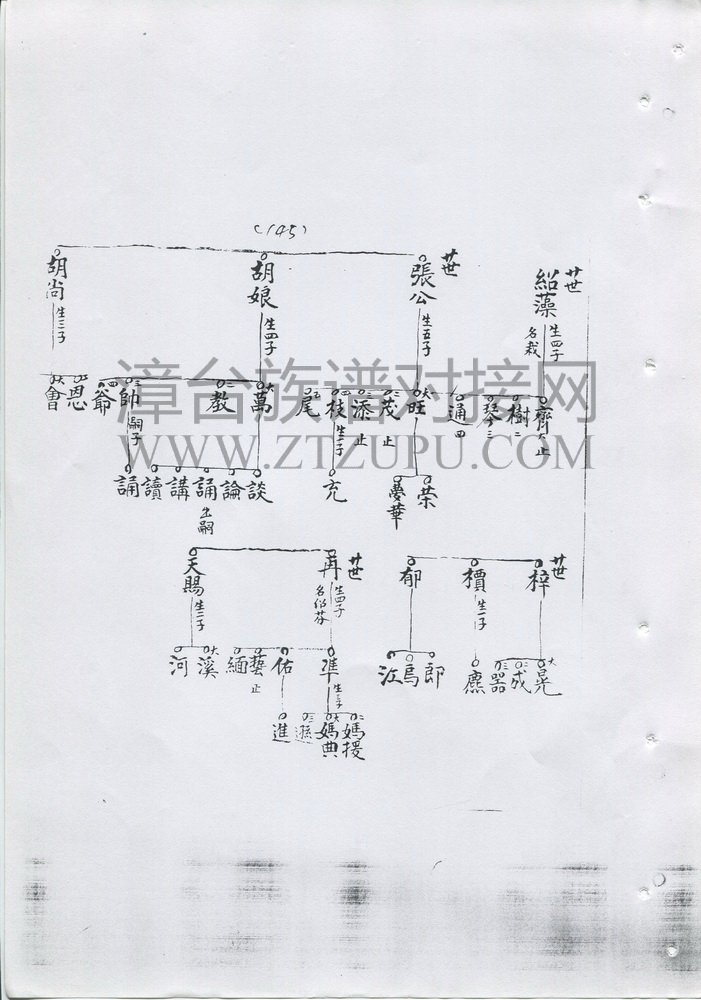 (145)
廿世
紹藻
生四子
名栽
齊 大 止
樹 二
琴 三
通 四
廿世
張公
生五子
大 旺
二 茂 止
三 添 止
四 枝 生二子
五 尾
榮
夢華
充
胡娘
生四子
大 萬
二 教
三 帥 嗣子
四 爺
談
論
誦 出嗣
講
讀
誦
胡尚
生三子
恩
會
廿世
梓
大 晃
二 成
三 器
價
生一子
應
郁
郎
烏
江
廿世
再
生四子
準
生三子
佑
藝 止
緬
二 媽援
大 媽典
三
進
天賜
生二子
大 溪
二 河
漳台族谱对接网
WWW.ZTZUPU.COM